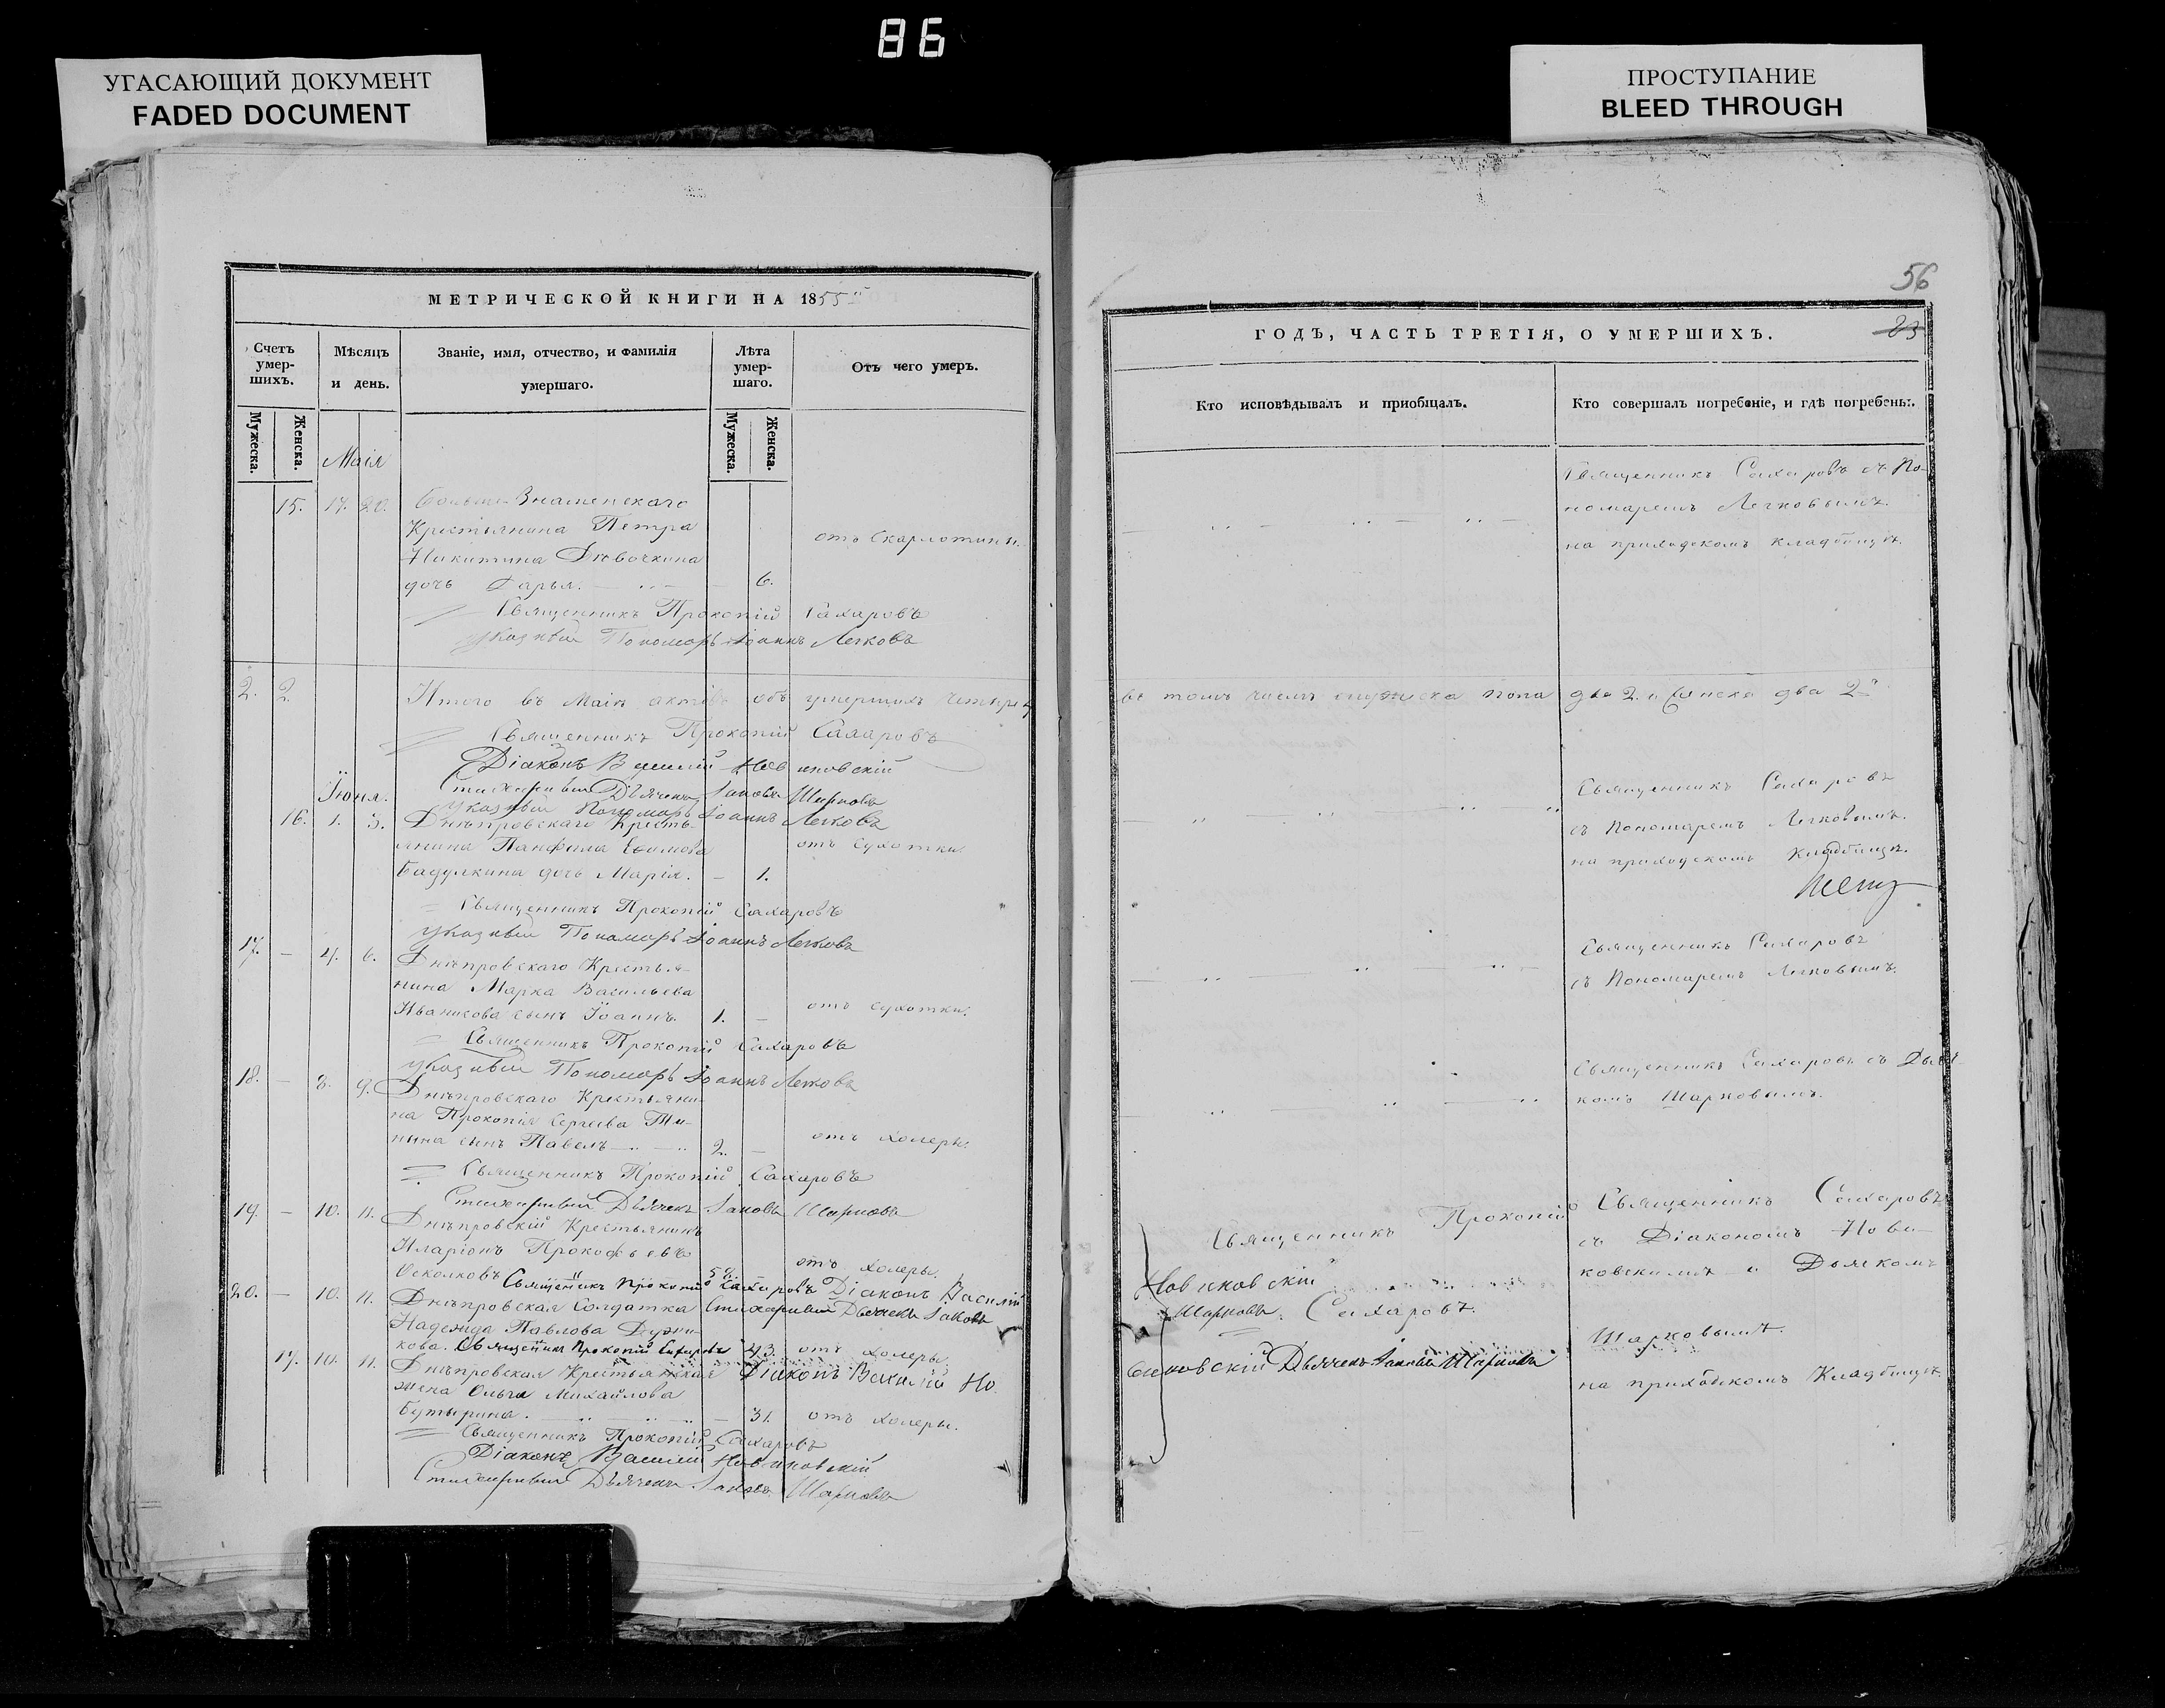 86
УГАСАЮЩИЙ ДОКУМЕНТ
FADED DOCUMENT
ПРОСТУПАНИЕ
BLEED THROUGH
МЕТРИЧЕСКОЙ КНИГИ НА 1855
Счетъ умер-шихъ.
Мѣсяцъ и день.
Званіе, имя, отчество, и фамилія умершаго.
Лѣта умер-шаго.
Отъ чего умеръ.
Мужеска.
Женска.
Мужеска.
Женска.
Маія
15. 17. 20. Больше-Знаменскаго
Крестьянина Петра
Никитина Дѣвочкина
дочь Дарья. 6.
отъ скарлотины.
Священникъ Прокопій Сахаровъ
указный Пономарь Іоаннъ Легковъ
2. 2. Итого въ Маіѣ объ умершихъ четыре
Священникъ Прокопій Сахаровъ
Діаконъ Василій Новиковскій
Стихарный Дьячекъ Іаковъ Шарковъ
указный Пономарь Іоаннъ Легковъ
Іюня.
16. 1. 3. Днѣпровскаго Кресть-
янина Панфила Ефимова
Бадулкина дочь Марія. — 1.
отъ сухотки.
Священникъ Прокопій Сахаровъ
указный Пономарь Іоаннъ Легковъ
17. — 4. 6. Днѣпровскаго Крестья-
нина Марка Васильева
Иваникова сынъ Іоаннъ. 1. — отъ сухотки.
Священникъ Прокопій Сахаровъ
указный Пономарь Іоаннъ Легковъ
18. — 8. 9. Днѣпровскаго Крестьяни-
на Прокопія Сергѣева
сынъ Павелъ 2. — отъ холеры.
Священникъ Прокопій Сахаровъ
Стихарный Дьячекъ Іаковъ Шарковъ
19. — 10. 11. Днѣпровскій Крестьянинъ
Иларіонъ Прокофьевъ
Осколковъ отъ холеры.
Священникъ Прокопій Сахаровъ Діаконъ Василій
20. — 10. 11. Днѣпровская Солдатка Стихарный Дьячекъ Іаковъ
Надежда Павлова
кова. Священникъ Прокопій Сахаровъ 43. отъ холеры.
17. 10. 11. Днѣпровская Крестьянская Діаконъ Василій Но
жена Ольга Михайлова
Бутырина. — 31. отъ холеры.
Священникъ Прокопій Сахаровъ
Діаконъ Василій Новиковскій
Стихарный Дьячекъ Іаковъ Шарковъ
56
23
ГОДЪ, ЧАСТЬ ТРЕТІЯ, О УМЕРШИХЪ.
Кто исповѣдывалъ и пріобщалъ.
Кто совершалъ погребеніе, и гдѣ погребены.
Священникъ Сахаровъ съ По-
номаремъ Легковымъ.
на приходскомъ кладбищѣ.
въ томъ числѣ пола два 2. и женска два 2
Священникъ Сахаровъ
съ Пономаремъ Легковымъ.
на приходскомъ кладбищѣ.
Священникъ Сахаровъ
съ Пономаремъ Легковымъ.
Священникъ Сахаровъ съ Дьяч-
комъ Шарковымъ.
Священникъ Прокопій
Новиковскій
Шарковъ. Сахаровъ.
виковскій Дьячекъ Іаковъ Шарковъ
Священникъ Сахаровъ
съ Діакономъ Нови-
ковскимъ и Дьячкомъ
Шарковымъ.
на приходскомъ Кладбищѣ.